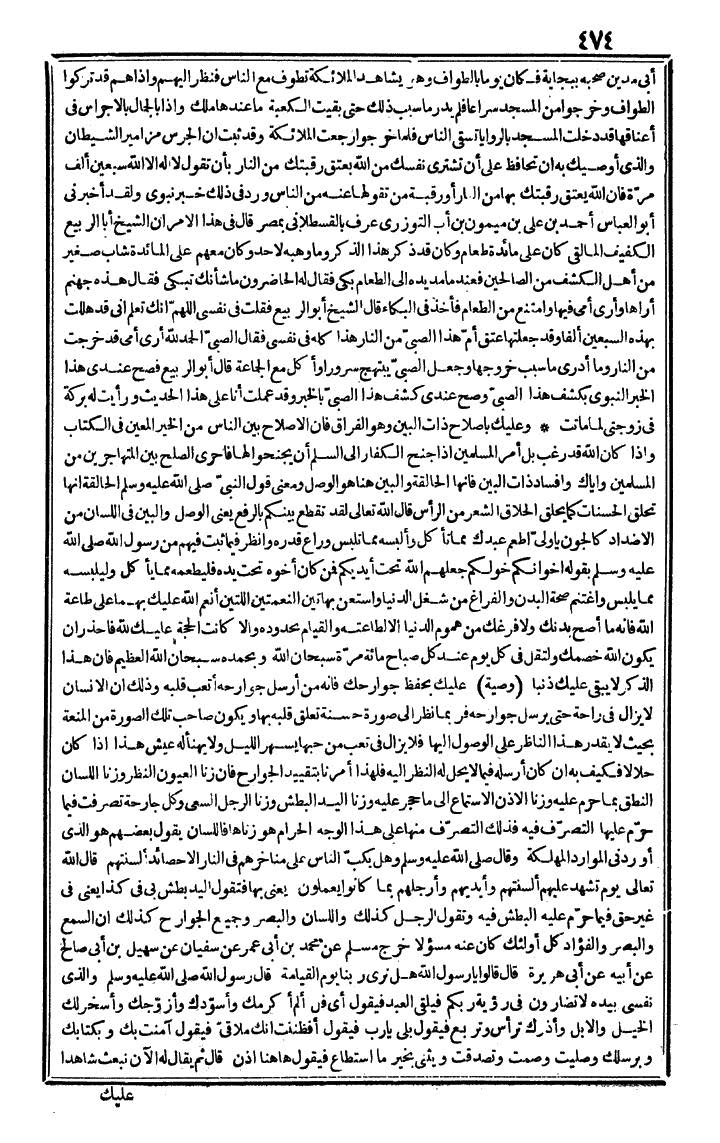 ٤٧٤
أبى مدين صحبه ببجاية فكان يوما بالطواف وهو يشاهد الملائكة تطوف مع الناس فنظر اليهم واذا هم قد تركوا
الطواف وخرجوا من المسجد سراعا فلم يدر ما سبب ذلك حتى بقيت الكعبة ما عندها ملك واذا بالجمال بالاجراس فى
أعناقها قد دخلت المسجد بالروايا تسقى الناس فلما خرجوا رجعت الملائكة وقد ثبت ان الجرس مزامير الشيطان
والذى أوصيك به ان تحافظ على أن تشترى نفسك من الله بعتق رقبتك من النار بأن تقول لا اله الا الله سبعين ألف
مرّة فان الله يعتق رقبتك بها من النار أو رقبة من تقولها عنه من الناس ورد فى ذلك خبر نبوى ولقد أخبرنى
أبو العباس أحمد بن على بن ميمون بن أب التوزرى عرف بالقسطلانى بمصر قال فى هذا الامر ان الشيخ أبا الربيع
الكفيف المالقى كان على مائدة طعام وكان قد ذكر هذا الذكر وما وهبه لاحد وكان معهم على المائدة شاب صغير
من أهل الكشف من الصالحين فعند ما مد يده الى الطعام بكى فقال له الحاضرون ما شأنك تبكى فقال هذه جهنم
أراها وأرى أمى فيها وامتنع من الطعام فأخذ فى البكاء قال الشيخ أبو الربيع فقلت فى نفسى اللهمّ انك تعلم انى قد هللت
بهذه السبعين ألفا وقد جعلتها عتق أمّ هذا الصبىّ من النار هذا كله فى نفسى فقال الصبىّ الحمد لله أرى أمى قد خرجت
من النار وما أدرى ما سبب خروجها وجعل الصبىّ يبتهج سرورا وأكل مع الجماعة قال أبو الربيع فصح عندى هذا
الخبر النبوى بكشف هذا الصبىّ وصح عندى كشف هذا الصبىّ بالخبر وقد عملت أنا على هذا الحديث ورأيت له بركة
فى زوجتى لما ماتت * وعليك باصلاح ذات البين وهو الفراق فان الاصلاح بين الناس من الخير المعين فى الكتاب
واذا كان الله قد رغب بل أمر المسلمين اذا جنح الكفار الى السلم أن يجنحوا لها فاحرى الصلح بين المتهاجرين من
المسلمين واياك وافساد ذات البين فانها الحالقة والبين هنا هو الوصل ومعنى قول النبىّ صلى الله عليه وسلم الحالقة انها
تحلق الحسنات كما يحلق الحلاق الشعر من الرأس قال الله تعالى لقد تقطع بينكم بالرفع يعنى الوصل والبين فى اللسان من
الاضداد كالجون ياولى اطعم عبدك مما تأكل وألبسه مما تلبس وراع قدره وانظر فيما ثبت فيهم من رسول الله صلى الله
عليه وسلم بقوله اخوانكم خولكم جعلهم الله تحت أيديكم فمن كان أخوه تحت يده فليطعمه مما يأكل وليلبسه
مما يلبس واغتنم صحة البدن والفراغ من شغل الدنيا واستعن بهاتين النعمتين اللتين أنعم الله عليك بهما على طاعة
الله فانه ما أصح بدنك ولا فرغك من هموم الدنيا الا لطاعته والقيام بحدوده والا كانت الحجة عليك لله فاحذر ان
يكون الله خصمك ولتقل فى كل يوم عند كل صباح مائة مرّة سبحان الله وبحمده سبحان الله العظيم فان هذا
الذكر لا يبقى عليك ذنبا (وصية) عليك بحفظ جوارحك فانه من أرسل جوارحه أتعب قلبه وذلك ان الانسان
لا يزال فى راحة حتى يرسل جوارحه فربما نظر الى صورة حسنة تعلق قلبه بها ويكون صاحب تلك الصورة من المنعة
بحيث لا يقدر هذا الناظر على الوصول اليها فلا يزال فى تعب من حبها يسهر الليل ولا يهنأ له عيش هذا اذا كان
حلالا فكيف به ان كان أرسله فيما لا يحل له النظر اليه فلهذا أمرنا بتقييد الجوارح فان زنا العيون النظر وزنا اللسان
النطق بما حرم عليه وزنا الاذن الاستماع الى ما حجر عليه وزنا اليد البطش وزنا الرجل السعى وكل جارحة تصرفت فيما
حرّم عليها التصرّف فيه فذلك التصرّف منها على هذا الوجه الحرام هو زناها فاللسان يقول بعضهم هو الذى
أوردنى الموارد المهلكة وقال صلى الله عليه وسلم وهل يكبّ الناس على مناخرهم فى النار الا حصائد ألسنتهم قال الله
تعالى يوم تشهد عليهم ألسنتهم وأيديهم وأرجلهم بما كانوا يعملون يعنى بها فتقول اليد بطش بى فى كذا يعنى فى
غير حق فيما حرّم عليه البطش فيه وتقول الرجل كذلك واللسان والبصر وجميع الجوارح كذلك ان السمع
والبصر والفؤاد كل أولئك كان عنه مسؤلا خرج مسلم عن محمد بن أبى عمر عن سفيان عن سهيل بن أبى صالح
عن أبيه عن أبى هريرة قال قالوا يارسول الله هل نرى ربنا يوم القيامة قال رسول الله صلى الله عليه وسلم والذى
نفسى بيده لا تضارون فى رؤية ربكم فيلقى العبد فيقول أى فل ألم أكرمك وأسوّدك وأزوّجك وأسخر لك
الخيل والابل وأذرك ترأس وتربع فيقول بلى يارب فيقول أفظننت انك ملاقىّ فيقول آمنت بك وبكتابك
وبرسلك وصليت وصمت وتصدقت ويثنى بخير ما استطاع فيقول هاهنا اذن قال ثم يقال له الآن نبعث شاهدا
عليك